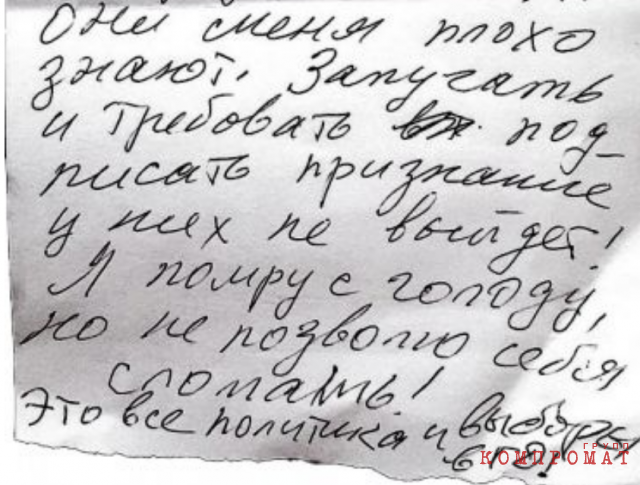 Они меня плохо
знают. Запугать
и требовать под-
писать признание
у них не выйдет!
Я помру с голоду,
но не позволю себя
сломать!
Это все политика и выборы
в ГД!
ГРУПП
КОМПРОМАТ